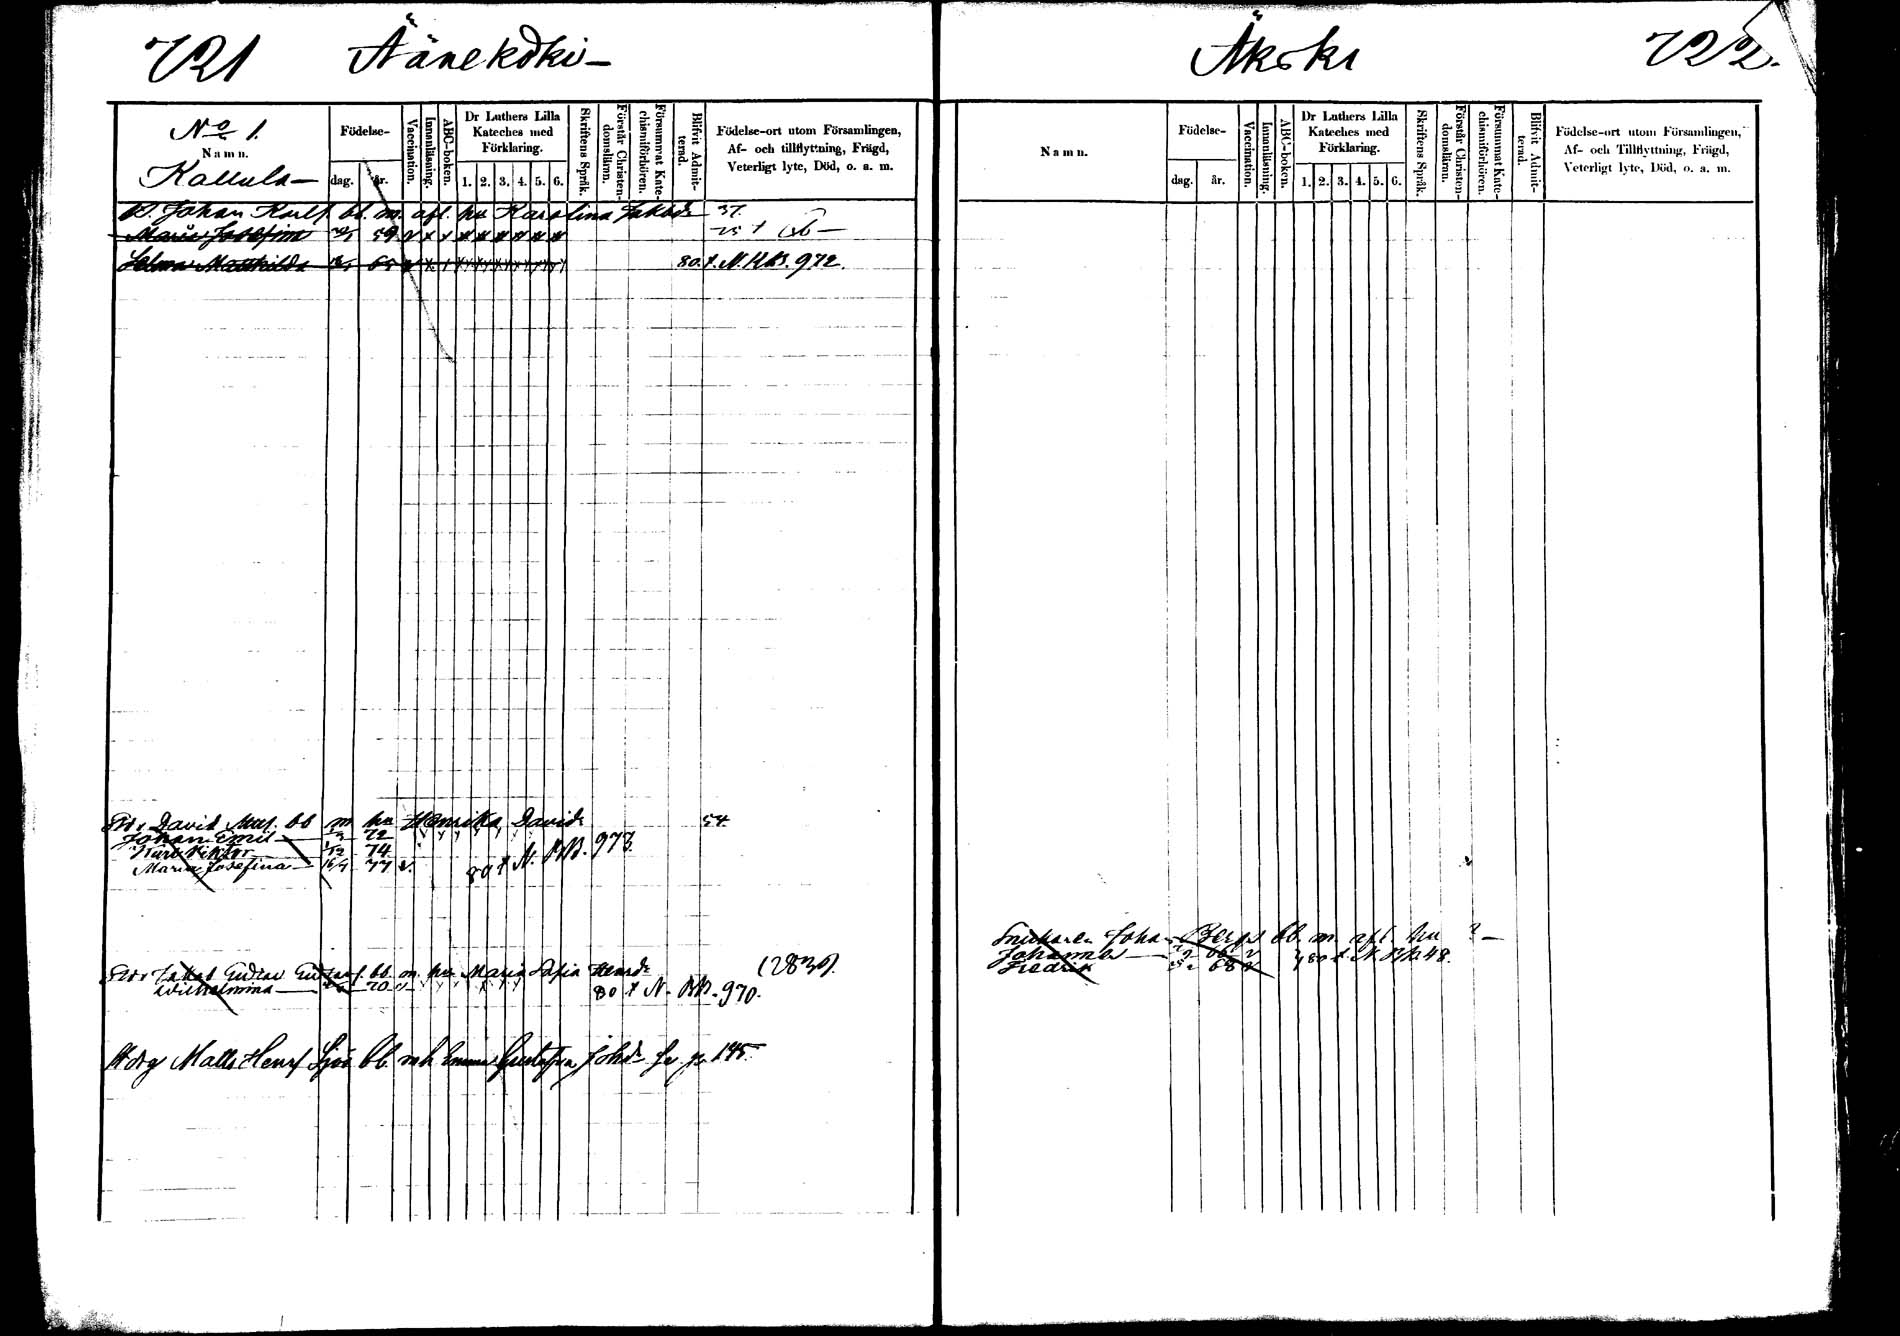 721 Äänekoski –
No 1.
Namn.
Kallula –
Födelse-
dag. år.
Vaccination.
Innanläsning.
ABC-boken.
Dr Luthers Lilla Kateches med Förklaring.
1. 2. 3. 4. 5. 6.
Skriftens Språk.
Förstår Christen-domslärnn.
Försummat Kate-chismiförhören.
Blifvit Admit-terad.
Födelse-ort utom Församlingen,
Af- och tillflyttning, Frägd,
Veterligt lyte, Död, o. a. m.
B. Johan Karls. bb. m. afl. hu Karolina Jakobdr 37.
Maria Josefina 59 75 +
Selma Mathilda 65 80. +. N. KB. 972.
David Mats. bb m hu Henrika Davidr 54
Johan Emil 72
Karl Viktor 74
Maria Josefina 16/9 77 v. 80 + N. KB. 973.
Jakob Gustav bb. m. hu Maria Sofia Henrdr (2836).
Wilhelmina 70 80 + N. KB. 970.
Matts Henr bb. mh Emma Gustafva Johdr Se p. 145.
Äkoski 722.
Namn.
Födelse-
dag. år.
Vaccination.
Innanläsning.
ABC-boken.
Dr Luthers Lilla Kateches med Förklaring.
1. 2. 3. 4. 5. 6.
Skriftens Språk.
Förstår Christen-domslärnn.
Försummat Kate-chismiförhören.
Blifvit Admit-terad.
Födelse-ort utom Församlingen,
Af- och Tillflyttning, Frägd,
Veterligt lyte, Död, o. a. m.
Snickaren Johan Berg bb. m. afl. hu ? –
Johannes 66 80 +. N. KB. 48.
Fredrik 68